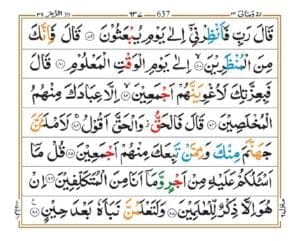 ٦٣٧ 637
قَالَ رَبِّ فَأَنْظِرْنِيْٓ إِلٰى يَوْمِ يُبْعَثُوْنَ ۝ قَالَ فَإِنَّكَ
مِنَ الْمُنْظَرِيْنَ ۝ إِلٰى يَوْمِ الْوَقْتِ الْمَعْلُوْمِ ۝ قَالَ
فَبِعِزَّتِكَ لَأُغْوِيَنَّهُمْ أَجْمَعِيْنَ ۝ إِلَّا عِبَادَكَ مِنْهُمُ
الْمُخْلَصِيْنَ ۝ قَالَ فَالْحَقُّ وَالْحَقَّ أَقُوْلُ ۝ لَأَمْلَئَنَّ
جَهَنَّمَ مِنْكَ وَمِمَّنْ تَبِعَكَ مِنْهُمْ أَجْمَعِيْنَ ۝ قُلْ مَآ
أَسْئَلُكُمْ عَلَيْهِ مِنْ أَجْرٍ وَّمَآ أَنَا مِنَ الْمُتَكَلِّفِيْنَ ۝ إِنْ
هُوَ إِلَّا ذِكْرٌ لِّلْعٰلَمِيْنَ ۝ وَلَتَعْلَمُنَّ نَبَأَهٗ بَعْدَ حِيْنٍ ۝